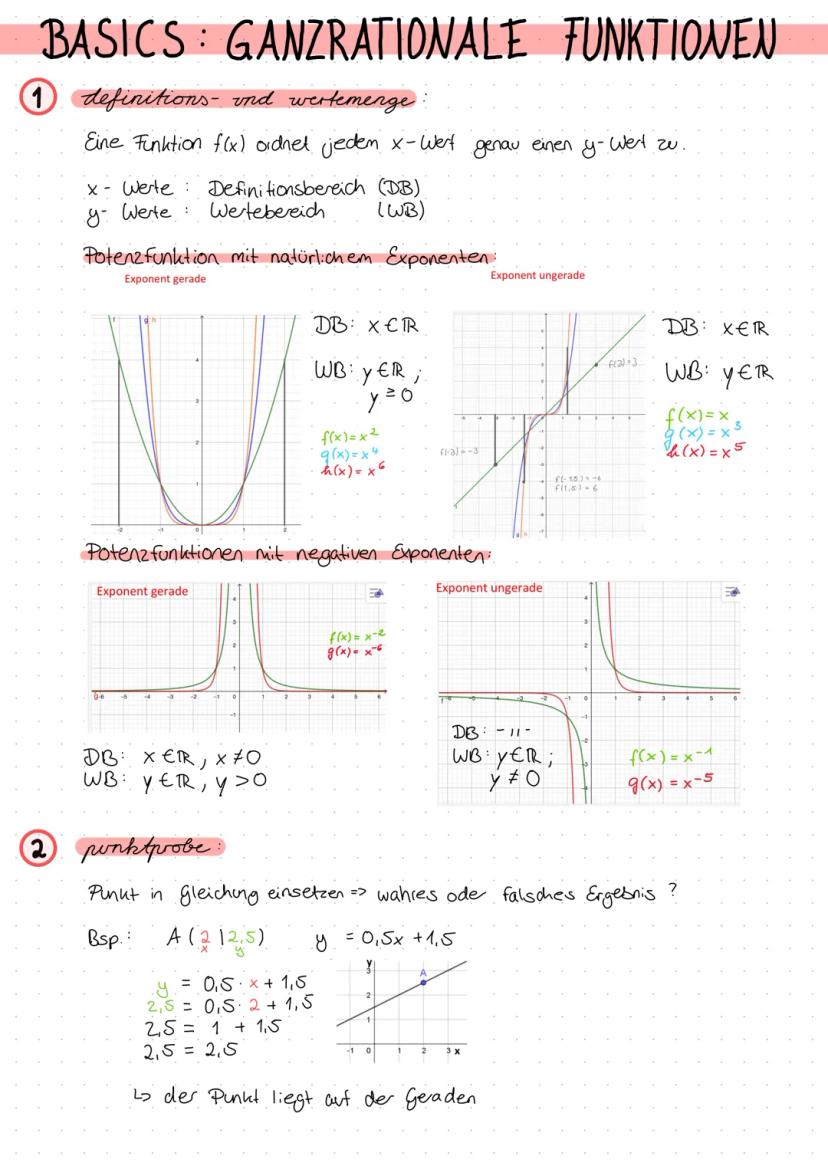 BASICS: GANZRATIONALE FUNKTIONEN
1 definitions- und wertemenge:
Eine Funktion f(x) ordnet jedem x-Wert genau einen y-Wert zu.
x- Werte : Definitionsbereich (DB)
y- Werte : Wertebereich (WB)
Potenzfunktion mit natürlichem Exponenten:
Exponent gerade
Exponent ungerade
DB: x∈ℝ
WB: y∈ℝ ;
y≥0
f(x)=x²
g(x)=x⁴
h(x)=x⁶
f(3)=3
f(-3)=-3
f(1,5)=6
DB: x∈ℝ
WB: y∈ℝ
f(x)=x
g(x)=x³
h(x)=x⁵
Potenzfunktionen mit negativen Exponenten:
Exponent gerade
f(x)=x⁻²
g(x)=x⁻⁶
DB: x∈ℝ, x≠0
WB: y∈ℝ, y>0
Exponent ungerade
DB: -11-
WB: y∈ℝ;
y≠0
f(x)=x⁻¹
g(x)=x⁻⁵
2 punktprobe:
Punkt in Gleichung einsetzen => wahres oder falsches Ergebnis ?
Bsp.: A(2|2,5) y = 0,5x +1,5
x y
y = 0,5· x + 1,5
2,5 = 0,5· 2 + 1,5
2,5 = 1 + 1,5
2,5 = 2,5
y
3
2
1
A
-1 0 1 2 3 x
↳ der Punkt liegt auf der Geraden